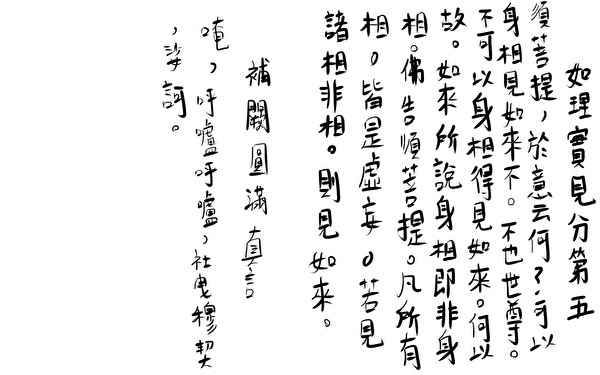 如理實見分第五
須菩提,於意云何?可以
身相見如來不。不也世尊。
不可以身相得見如來。何以
故。如來所說身相即非身
相。佛告須菩提。凡所有
相。皆是虛妄。若見
諸相非相。則見如來。
補闕圓滿真言
唵,呼嚧呼嚧,社曳穆契
,娑訶。